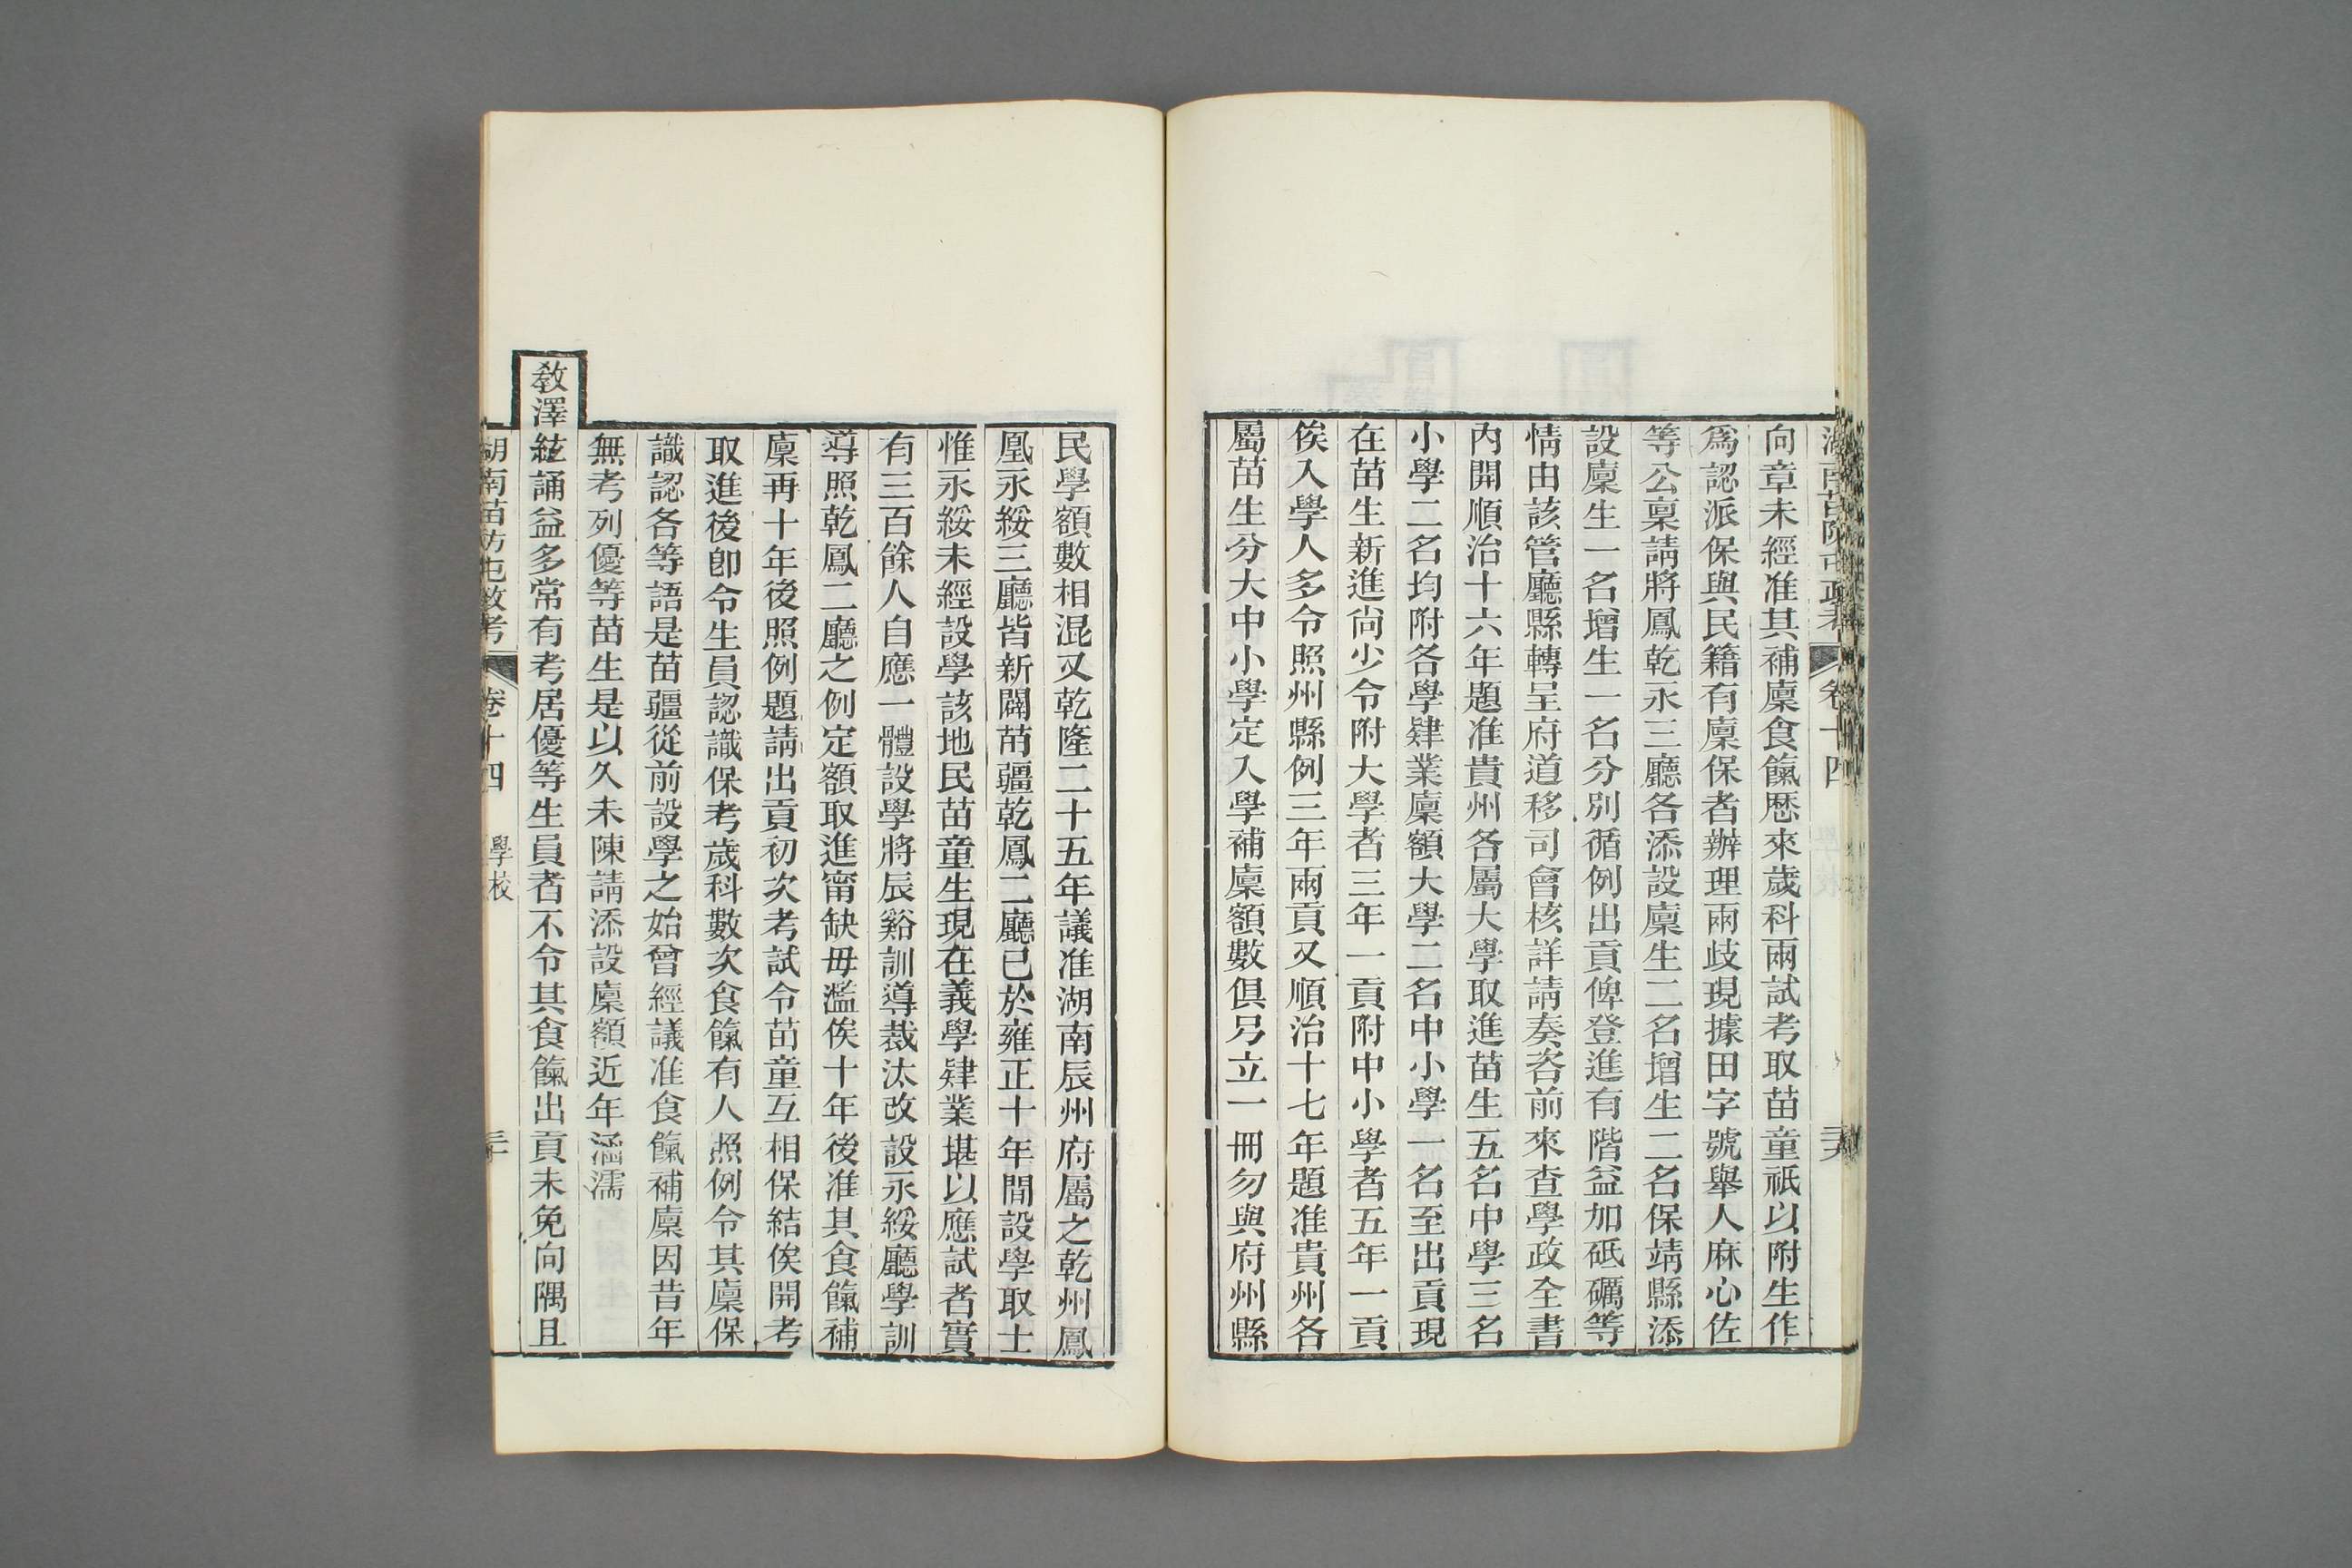 向章未經准其補廩食餼歷來歲科兩試考取苗童祇以附生作
爲認派保與民籍有廩保者辦理兩歧現據田字號舉人麻心佐
等公稟請將鳳乾永三廳各添設廩生二名增生二名保靖縣添
設廩生一名增生一名分別循例出貢俾登進有階益加砥礪等
情由該管廳縣轉呈府道移司會核詳請奏咨前來查學政全書
內開順治十六年題准貴州各屬大學取進苗生五名中學三名
小學二名均附各學肄業廩額大學二名中小學一名至出貢現
在苗生新進尙少令附大學者三年一貢附中小學者五年一貢
俟入學人多令照州縣例三年兩貢又順治十七年題准貴州各
屬苗生分大中小學定入學補廩額數俱另立一冊勿與府州縣
民學額數相混又乾隆二十五年議准湖南辰州府屬之乾州鳳
凰永綏三廳皆新闢苗疆乾鳳二廳已於雍正十年間設學取士
惟永綏未經設學該地民苗童生現在義學肄業堪以應試者實
有三百餘人自應一體設學將辰谿訓導裁汰改設永綏廳學訓
導照乾鳳二廳之例定額取進甯缺毋濫俟十年後准其食餼補
廩再十年後照例題請出貢初次考試令苗童互相保結俟開考
取進後卽令生員認識保考歲科數次食餼有人照例令其廩保
識認各等語是苗疆從前設學之始曾經議准食餼補廩因昔年
無考列優等苗生是以久未陳請添設廩額近年涵濡
教澤絃誦益多常有考居優等生員者不令其食餼出貢未免向隅且
湖南苗防屯政考 卷十四 學校